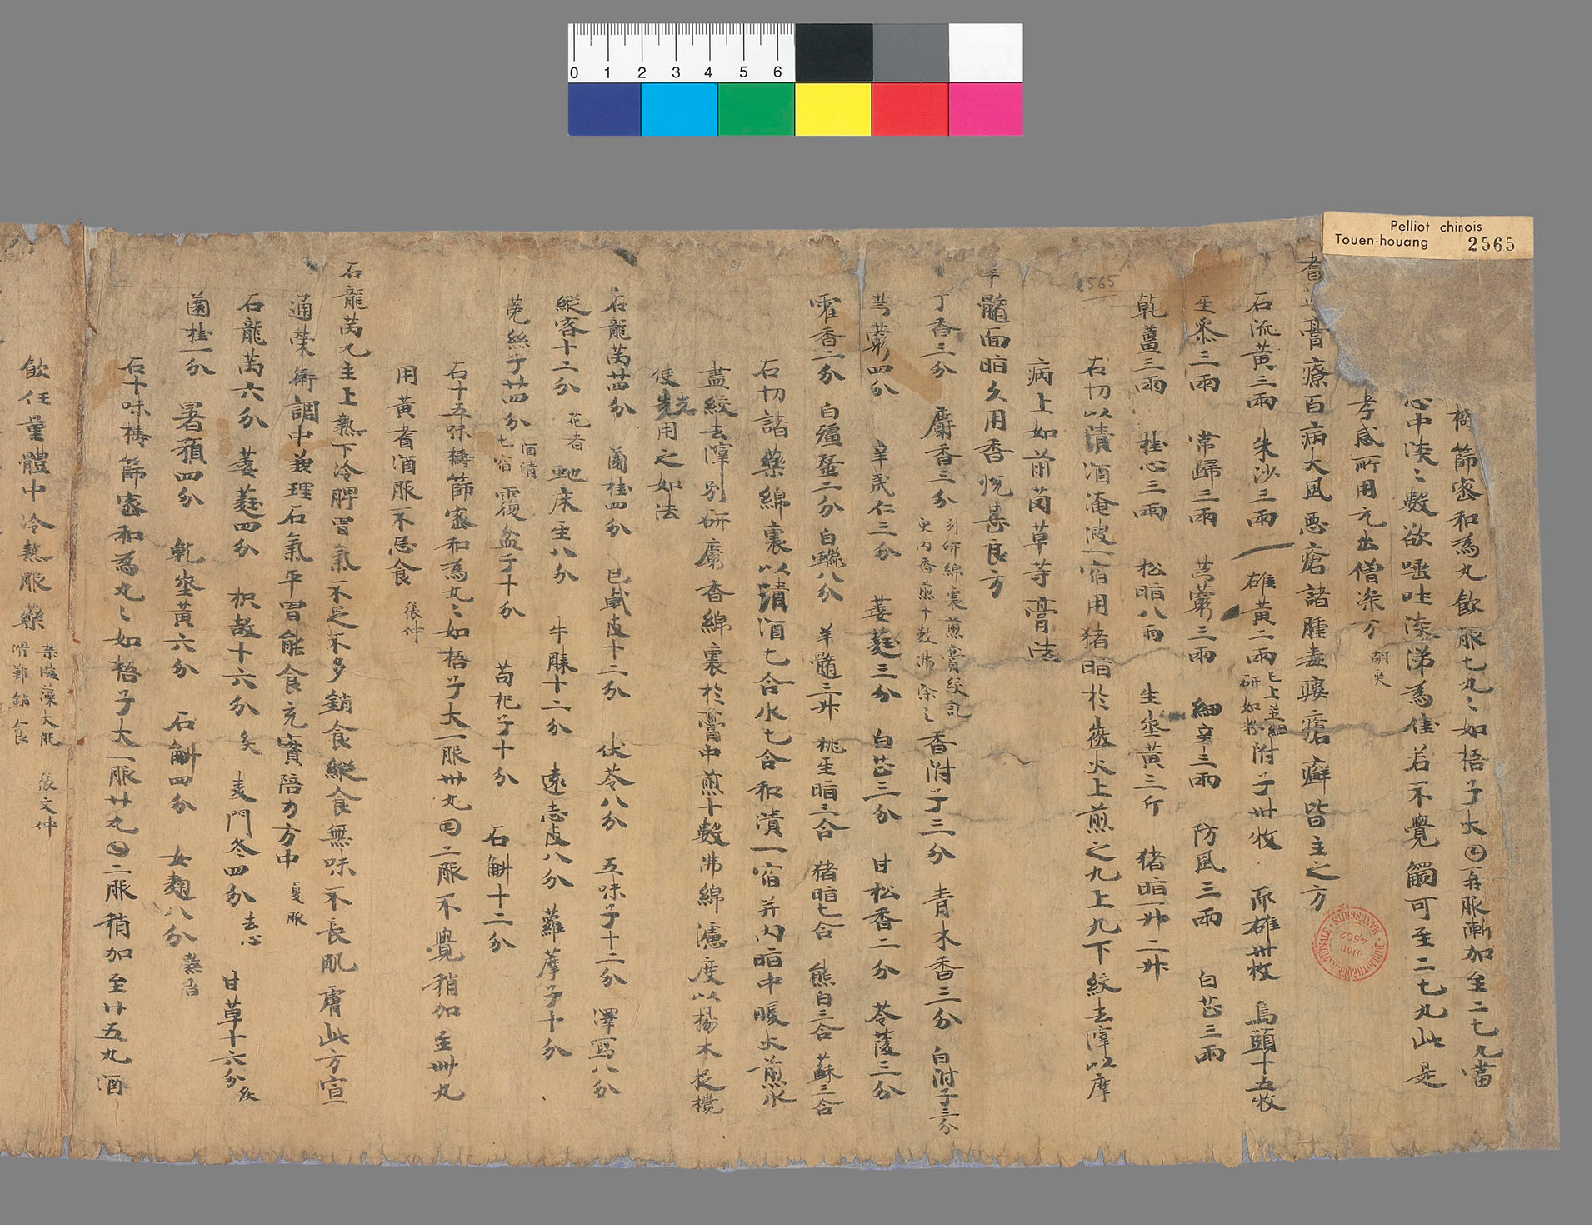 Pelliot chinois
Touen-houang 2565
0 1 2 3 4 5 6
2565
擣篩蜜和為丸飲服七丸〻如梧子大日再服漸加至二七丸當
心中淡〻數欲嘔吐淡涕為佳若不覺觸可至二七丸此是
孝感所用尤出僧深方
膏療百病大風惡瘡諸腫毒瘻瘡癬皆主之方
石流黃三兩 朱沙三兩 雄黃二兩 已上並細研如粉 附子卅枚 烏頭十五枚
生椒二兩 當歸二兩 芎藭三兩 細辛三兩 防風三兩 白芷三兩
乾薑三兩 桂心三兩 松脂八兩 生地黃三斤 猪脂一升二升
右切以清酒淹漬一宿用猪脂於微火上煎之九上九下絞去滓以摩
病上如前茵草等膏法
髓面脂久用香悅甚良方
丁香三分 麝香三分 別研綿裹煎膏絞訖更內香煎十數沸除之 香附子三分 青木香三分 白附子三分
芎藭四分 辛夷仁三分 葳蕤三分 白芷三分 甘松香二分 苓陵三分
霍香二分 白殭蠶二分 白鑞八分 羊髓三升 桃生脂二合 猪脂七合 熊白三合 蘇三合
右切諸藥綿裹以清酒七合水七合和漬一宿并內脂中暖火煎水
盡絞去滓別研麝香綿裹於膏中煎十數沸綿濾度以楊木捉攪
使先用之如法
石龍芮廿四分 菌桂四分 巴戟皮十二分 伏苓八分 五味子十二分 澤寫八分
縱容十二分 花者 虵床生八分 牛膝十二分 遠志皮八分 蘿摩子十分
菟絲子廿四分 酒漬七宿 覆盆子十分 苟杞子十分 石斛十二分
右十五味擣篩蜜和為丸〻如梧子大一服卅丸日二服不覺稍加至卌丸
用黃耆酒服不忌食 張仲
石龍芮丸主上熱下冷脾胃氣不足不多銷食縱食無味不長肌膚此方宣
通榮衛調中兼理石氣平胃能食充實陪力方中 夏服
石龍芮六分 葳蕤四分 枳殼十六分 炙 麦門冬四分 去心 甘草十六分 炙
菌桂一分 署預四分 乾地黃六分 石斛四分 女麴八分 熬香
右十味擣篩蜜和為丸〻如梧子大一服廿丸日二服稍加至廿五丸酒
飲任量體中冷熱服藥 張文仲